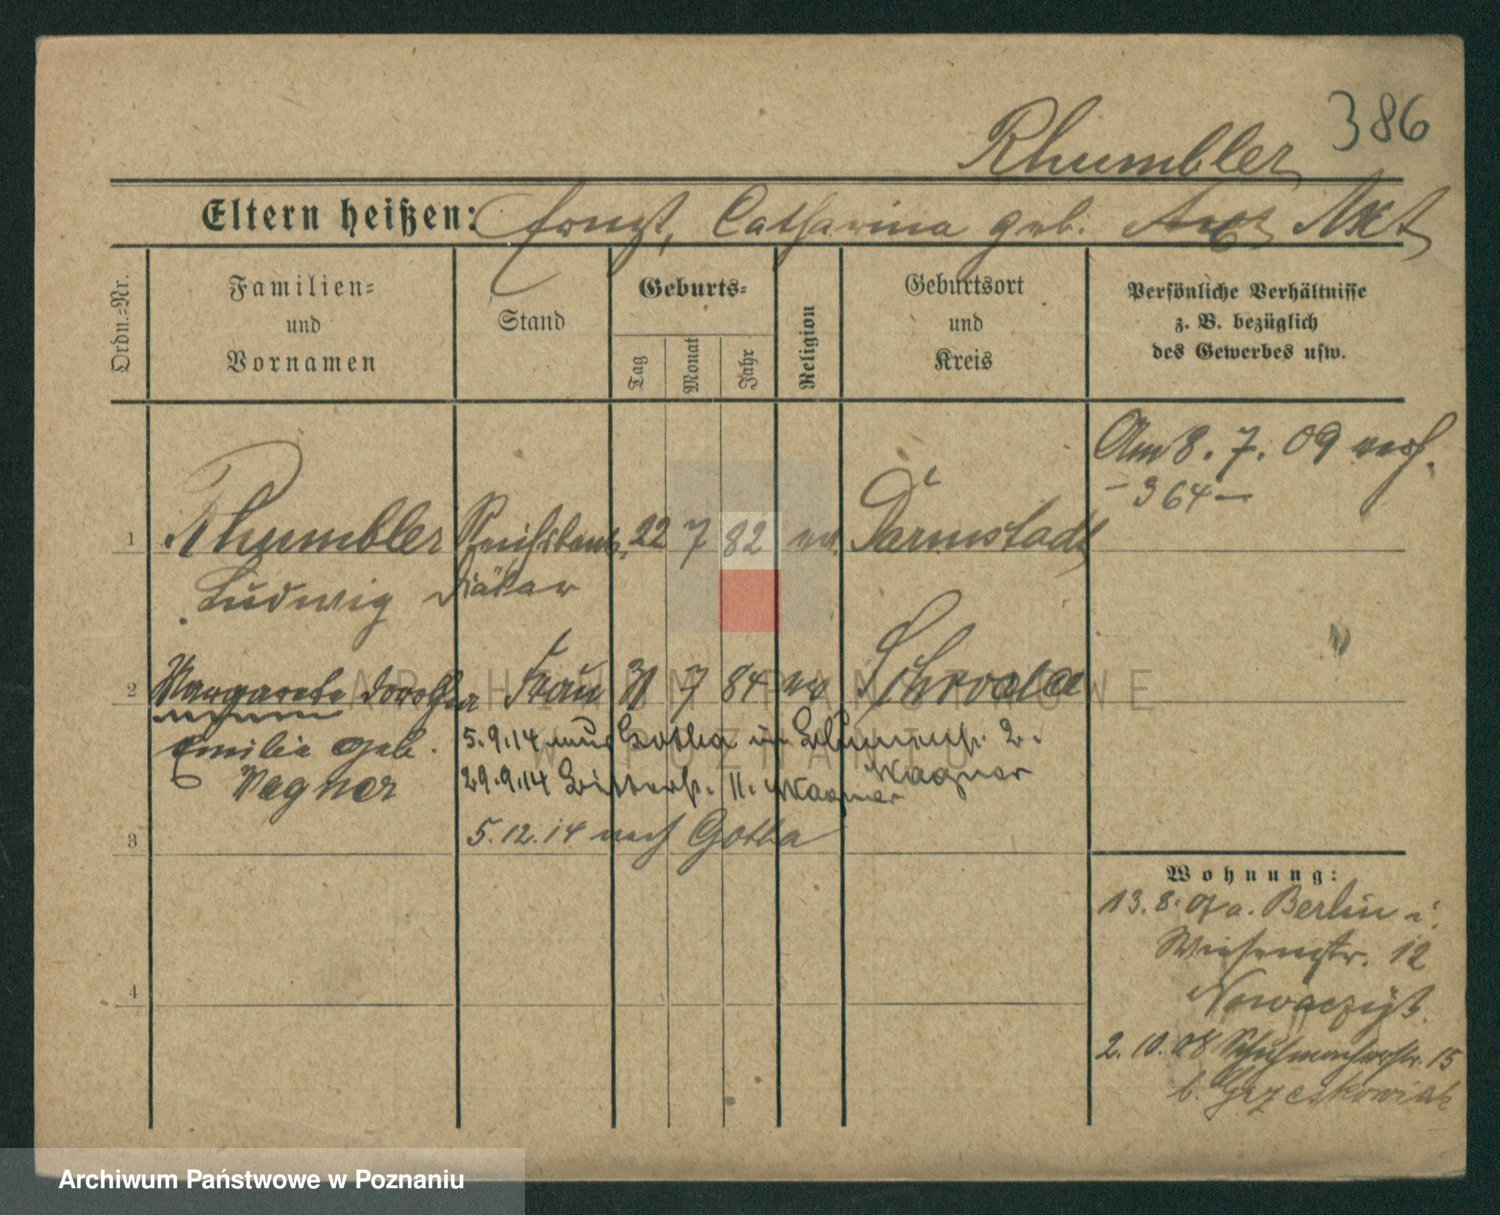 386
Rhumbler
Eltern heißen: Ernst, Catharina geb. Axt
Ordn.=Nr.
Familien=
und
Vornamen
Stand
Geburts=
Tag
Monat
Jahr
Religion
Geburtsort
und
Kreis
Persönliche Verhältnisse
z. B. bezüglich
des Gewerbes usw.
Am 8. 7. 09 verh.
- 364 -
1 Rhumbler Reichsbank 22 7 82 ev. Darmstadt
Ludwig Diätar
2 Margarete Dorothea Frau 31 7 84 ev Schroda
Emilie geb. 5.9.14 aus Gotha in 2.
Wagner 29.9.14 11. Wagner Wagner
5.12.14 nach Gotha
3
4
Wohnung:
13.8.07 a. Berlin i.
Wiesenstr. 12
2. 10. 08 Schuhmacherstr. 15
b. Grzeskowiak
ARCHIWUM PAŃSTWOWE
W POZNANIU
Archiwum Państwowe w Poznaniu